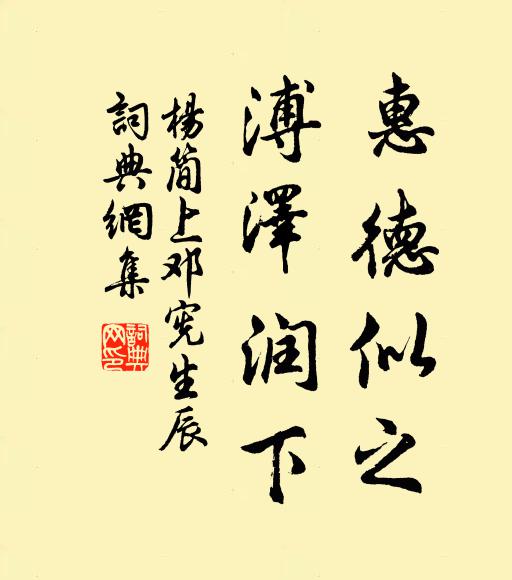 惠德似之
溥澤润下
楊简上邓宪生辰
詞典網集
詞典网印